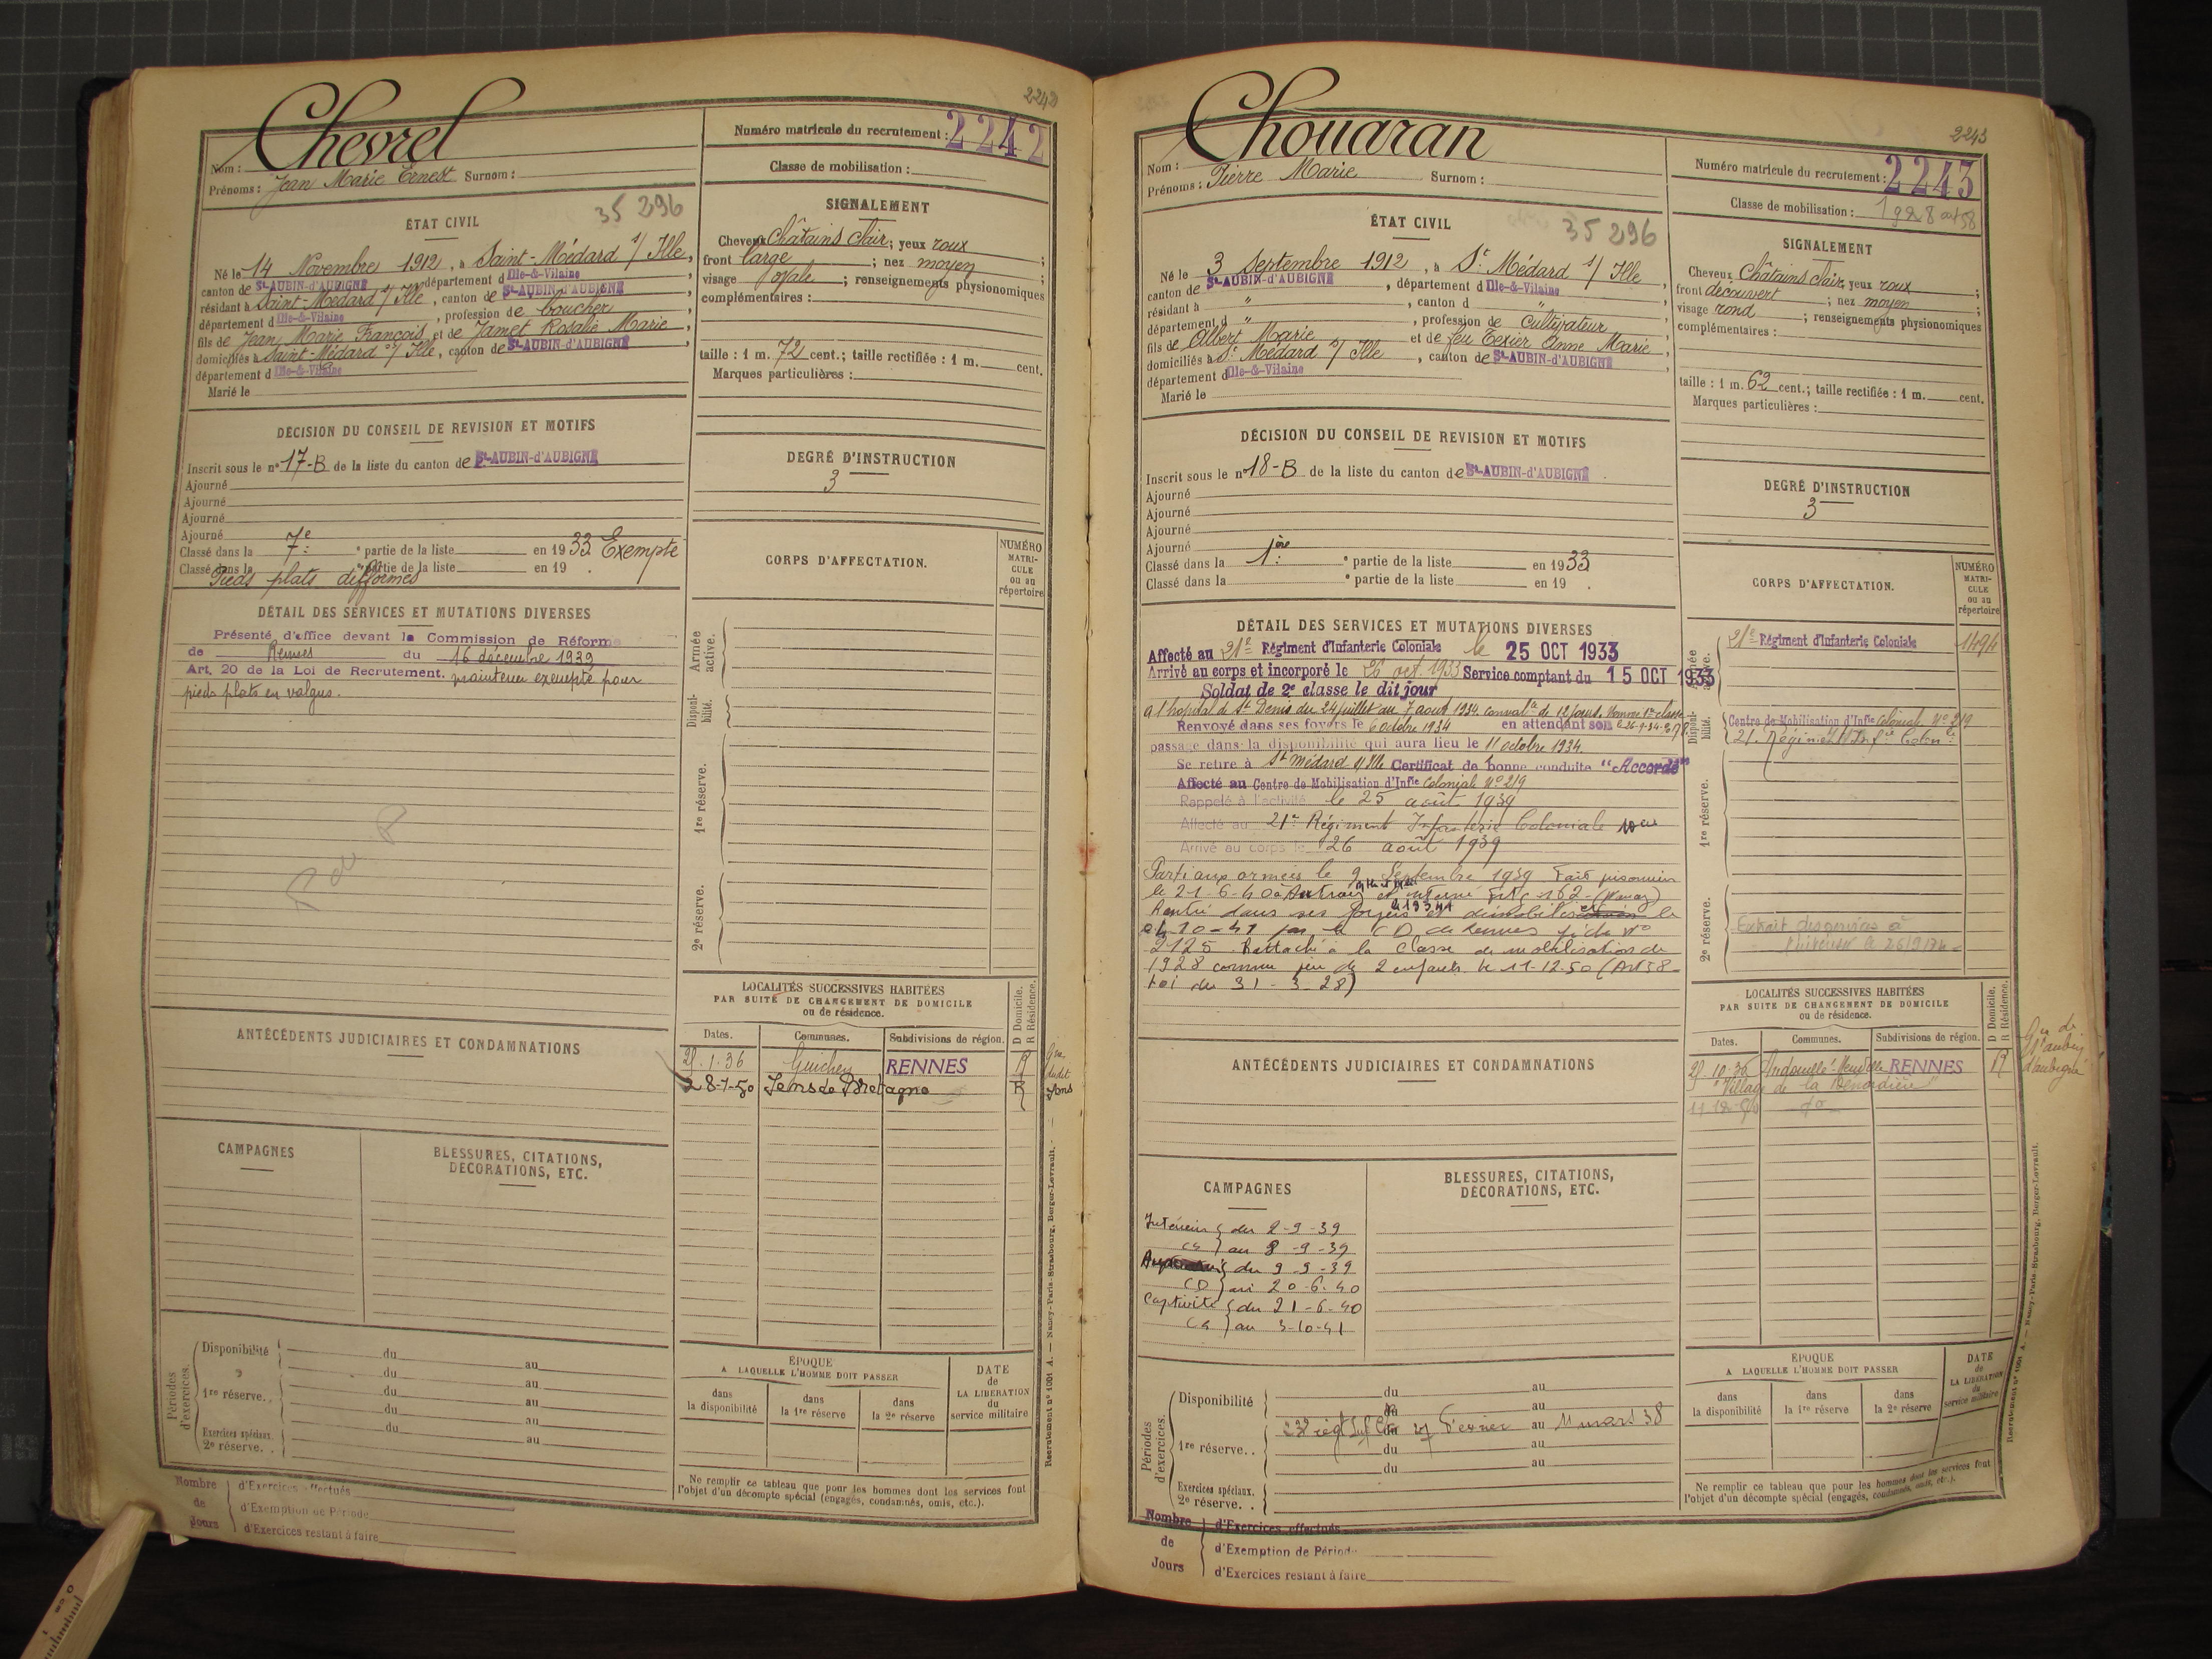 2242
Chevrel
Nom :
Prénoms : Jean Marie Ernest Surnom :
Numéro matricule du recrutement : 2242
Classe de mobilisation :
ÉTAT CIVIL
35 296
Né le 14 Novembre 1912, à Saint-Médard s/ Ille,
canton de St-AUBIN-d'AUBIGNÉ, département d Ille-&-Vilaine
résidant à Saint-Médard s/ Ille, canton de St-AUBIN-d'AUBIGNÉ,
département d Ille-&-Vilaine, profession de boucher
fils de Jean Marie François et de Jamet Rosalie Marie,
domiciliés à Saint-Médard s/ Ille, canton de St-AUBIN-d'AUBIGNÉ,
département d Ille-&-Vilaine
Marié le
SIGNALEMENT
Cheveux Châtains clair; yeux roux ;
front large ; nez moyen ;
visage ovale ; renseignements physionomiques
complémentaires :
taille : 1 m. 72 cent.; taille rectifiée : 1 m. cent.
Marques particulières :
DÉCISION DU CONSEIL DE REVISION ET MOTIFS
Inscrit sous le n° 17-B de la liste du canton de St-AUBIN-d'AUBIGNÉ
Ajourné
Ajourné
Ajourné
Ajourné
Classé dans la 7e partie de la liste en 1933 Exempté
Classé dans la ° partie de la liste en 19 .
Pieds plats difformes
DEGRÉ D'INSTRUCTION
3
DÉTAIL DES SERVICES ET MUTATIONS DIVERSES
Présenté d'office devant la Commission de Réforme
de Rennes du 16 décembre 1939
Art. 20 de la Loi de Recrutement. maintenu exempté pour
pieds plats en valgus.
CORPS D'AFFECTATION.
NUMÉRO MATRICULE ou au répertoire
Armée active.
Disponibilité.
1re réserve.
2e réserve.
ANTÉCÉDENTS JUDICIAIRES ET CONDAMNATIONS
LOCALITÉS SUCCESSIVES HABITÉES
PAR SUITE DE CHANGEMENT DE DOMICILE
ou de résidence.
D Domicile.
R Résidence.
Dates. Communes. Subdivisions de région.
1.36 Guichen RENNES R
28-1-50 Sens de Bretagne R
Sens
CAMPAGNES
BLESSURES, CITATIONS,
DÉCORATIONS, ETC.
Périodes d'exercices.
Disponibilité du au
1re réserve.. du au
Exercices spéciaux.
2e réserve. .
ÉPOQUE
A LAQUELLE L'HOMME DOIT PASSER
dans la disponibilité
dans la 1re réserve
dans la 2e réserve
DATE de LA LIBÉRATION du service militaire
Ne remplir ce tableau que pour les hommes dont les services font
l'objet d'un décompte spécial (engagés, condamnés, omis, etc.).
Nombre de Jours
d'Exercices effectués
d'Exemption de Période
d'Exercices restant à faire
Recrutement n° 1001 A. — Nancy-Paris-Strasbourg, Berger-Levrault.
2243
Chouaran
Nom :
Prénoms : Pierre Marie Surnom :
Numéro matricule du recrutement : 2243
Classe de mobilisation : 1928 art 58
ÉTAT CIVIL
35 296
Né le 3 Septembre 1912, à St Médard s/ Ille,
canton de St-AUBIN-d'AUBIGNÉ, département d Ille-&-Vilaine
résidant à " , canton d "
département d " , profession de cultivateur
fils de Albert Marie et de feu Texier Anne Marie,
domiciliés à St Médard s/ Ille, canton de St-AUBIN-d'AUBIGNÉ,
département d Ille-&-Vilaine
Marié le
SIGNALEMENT
Cheveux Châtains clair, yeux roux ;
front découvert ; nez moyen ;
visage rond ; renseignements physionomiques
complémentaires :
taille : 1 m. 62 cent.; taille rectifiée : 1 m. cent.
Marques particulières :
DÉCISION DU CONSEIL DE REVISION ET MOTIFS
Inscrit sous le n° 18-B de la liste du canton de St-AUBIN-d'AUBIGNÉ
Ajourné
Ajourné
Ajourné
Ajourné
Classé dans la 1ère ° partie de la liste en 1933
Classé dans la ° partie de la liste en 19 .
DEGRÉ D'INSTRUCTION
3
DÉTAIL DES SERVICES ET MUTATIONS DIVERSES
Affecté au 21e Régiment d'Infanterie Coloniale le 25 OCT 1933
Arrivé au corps et incorporé le 26 oct. 1933 Service comptant du 15 OCT 1933
Soldat de 2e classe le dit jour
à l'hôpital de St Denis du 24 juillet au 7 aout 1934. de 12 jours. 1re classe
Renvoyé dans ses foyers le 6 octobre 1934 en attendant son
passage dans la disponibilité qui aura lieu le 11 octobre 1934.
Se retire à St Médard s/ Ille Certificat de bonne conduite "Accordé"
Affecté au Centre de Mobilisation d'Infie Coloniale N° 219
Rappelé à l'activité le 25 août 1939
Affecté au 21e Régiment Infanterie Coloniale
Arrivé au corps le 26 août 1939
Parti aux armées le 9 Septembre 1939 Fait prisonnier
le 21-6-40 à interné 162
Rentré dans ses foyers et démobilisé le
4-10-41 par le CD de Rennes fiche N°
2125 Rattaché à la Classe de mobilisation de
1928 comme père de 2 enfants le 11-12-50 (Art 58
loi du 31-3-28)
CORPS D'AFFECTATION.
NUMÉRO MATRICULE ou au répertoire
Armée active.
21e Régiment d'Infanterie Coloniale 1494
Disponibilité.
Centre de Mobilisation d'Infie Coloniale N° 219
21. Régiment d'Infie Colon
1re réserve.
2e réserve.
Extrait des services à
ANTÉCÉDENTS JUDICIAIRES ET CONDAMNATIONS
LOCALITÉS SUCCESSIVES HABITÉES
PAR SUITE DE CHANGEMENT DE DOMICILE
ou de résidence.
D Domicile.
R Résidence.
Dates. Communes. Subdivisions de région.
10.36 Andouillé-Neuville RENNES R
"Village de la
11-12-50 do
St aubin
d'aubigné
CAMPAGNES
Intérieur du 2-9-39
CS au 8-9-39
du 9-9-39
CD au 20-6-40
Captivité du 21-6-40
CS au 3-10-41
BLESSURES, CITATIONS,
DÉCORATIONS, ETC.
Périodes d'exercices.
Disponibilité du au
du au
1re réserve.. Février au 11 mars 38
du au
du au
Exercices spéciaux.
2e réserve. .
ÉPOQUE
A LAQUELLE L'HOMME DOIT PASSER
dans la disponibilité
dans la 1re réserve
dans la 2e réserve
DATE de LA LIBÉRATION du service militaire
Ne remplir ce tableau que pour les hommes dont les services font
l'objet d'un décompte spécial (engagés, condamnés, omis, etc.).
Nombre de Jours
d'Exercices effectués
d'Exemption de Période
d'Exercices restant à faire
Recrutement n° 1001 A. — Nancy-Paris-Strasbourg, Berger-Levrault.